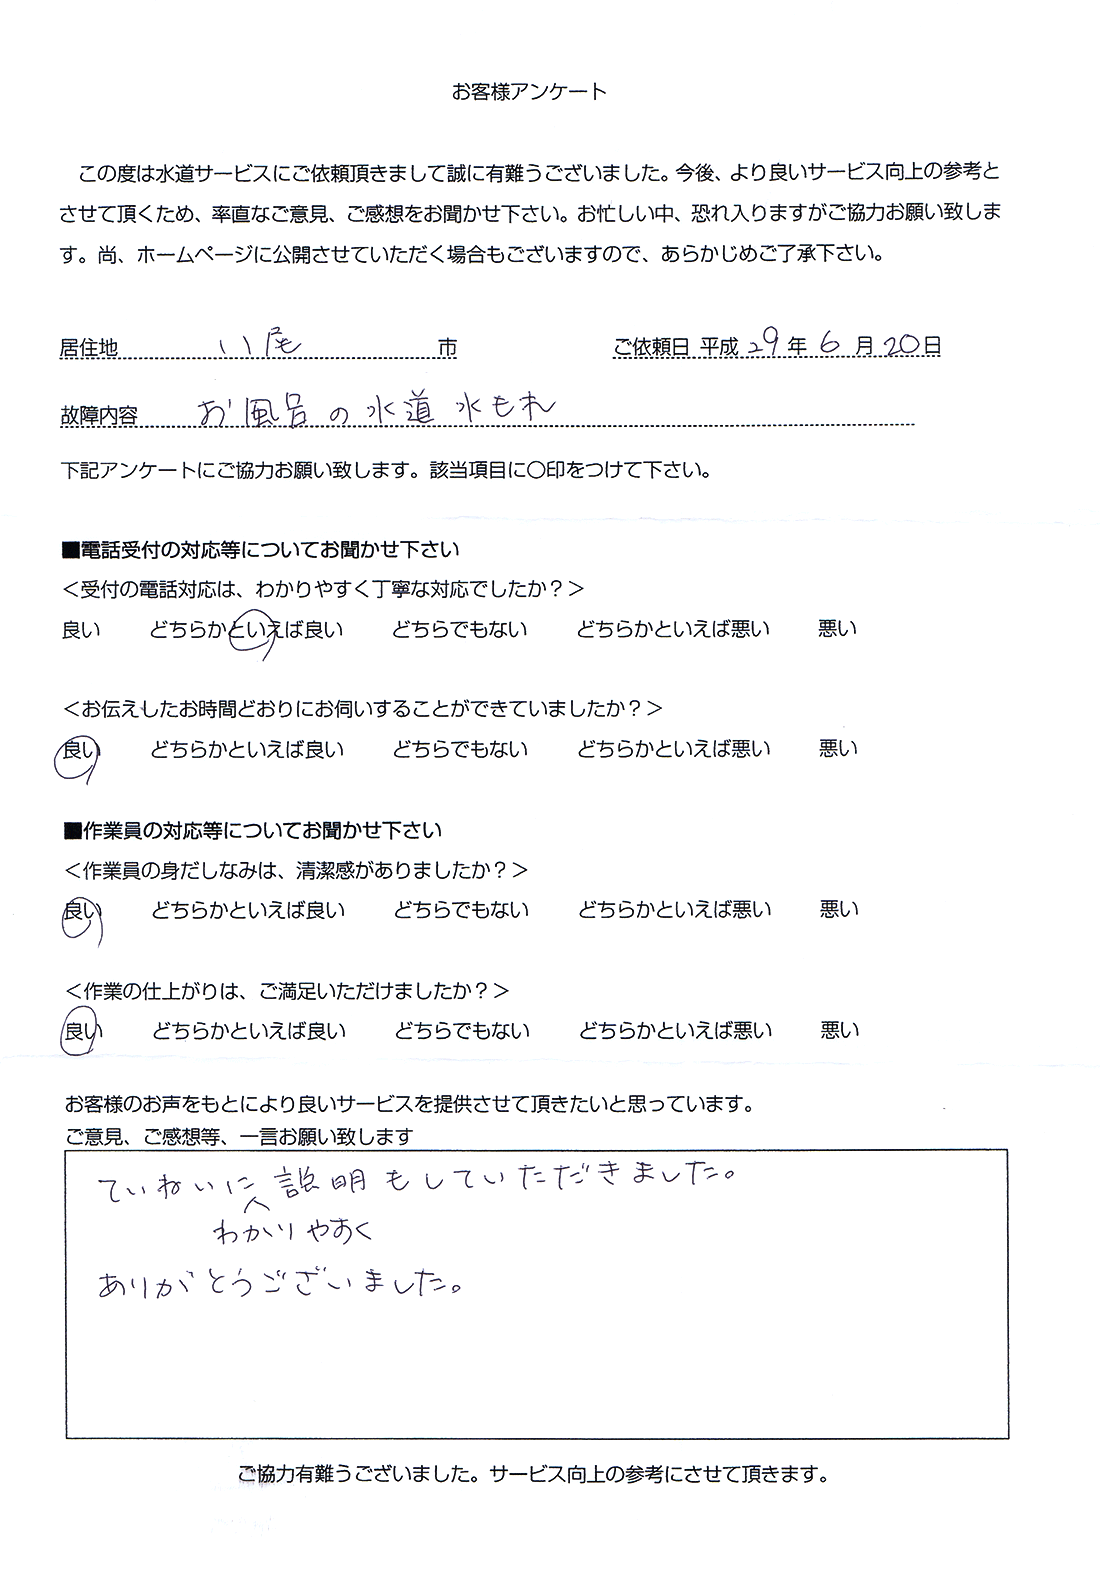 お客様アンケート
この度は水道サービスにご依頼頂きまして誠に有難うございました。今後、より良いサービス向上の参考と
させて頂くため、率直なご意見、ご感想をお聞かせ下さい。お忙しい中、恐れ入りますがご協力お願い致しま
す。尚、ホームページに公開させていただく場合もございますので、あらかじめご了承下さい。
居住地 八尾 市 ご依頼日 平成 29 年 6 月 20 日
故障内容 お風呂の水道 水もれ
下記アンケートにご協力お願い致します。該当項目に〇印をつけて下さい。
■電話受付の対応等についてお聞かせ下さい
＜受付の電話対応は、わかりやすく丁寧な対応でしたか？＞
良い どちらかといえば良い どちらでもない どちらかといえば悪い 悪い
＜お伝えしたお時間どおりにお伺いすることができていましたか？＞
良い どちらかといえば良い どちらでもない どちらかといえば悪い 悪い
■作業員の対応等についてお聞かせ下さい
＜作業員の身だしなみは、清潔感がありましたか？＞
良い どちらかといえば良い どちらでもない どちらかといえば悪い 悪い
＜作業の仕上がりは、ご満足いただけましたか？＞
良い どちらかといえば良い どちらでもない どちらかといえば悪い 悪い
お客様のお声をもとにより良いサービスを提供させて頂きたいと思っています。
ご意見、ご感想等、一言お願い致します
ていねいに説明もしていただきました。
わかりやすく
ありがとうございました。
ご協力有難うございました。サービス向上の参考にさせて頂きます。